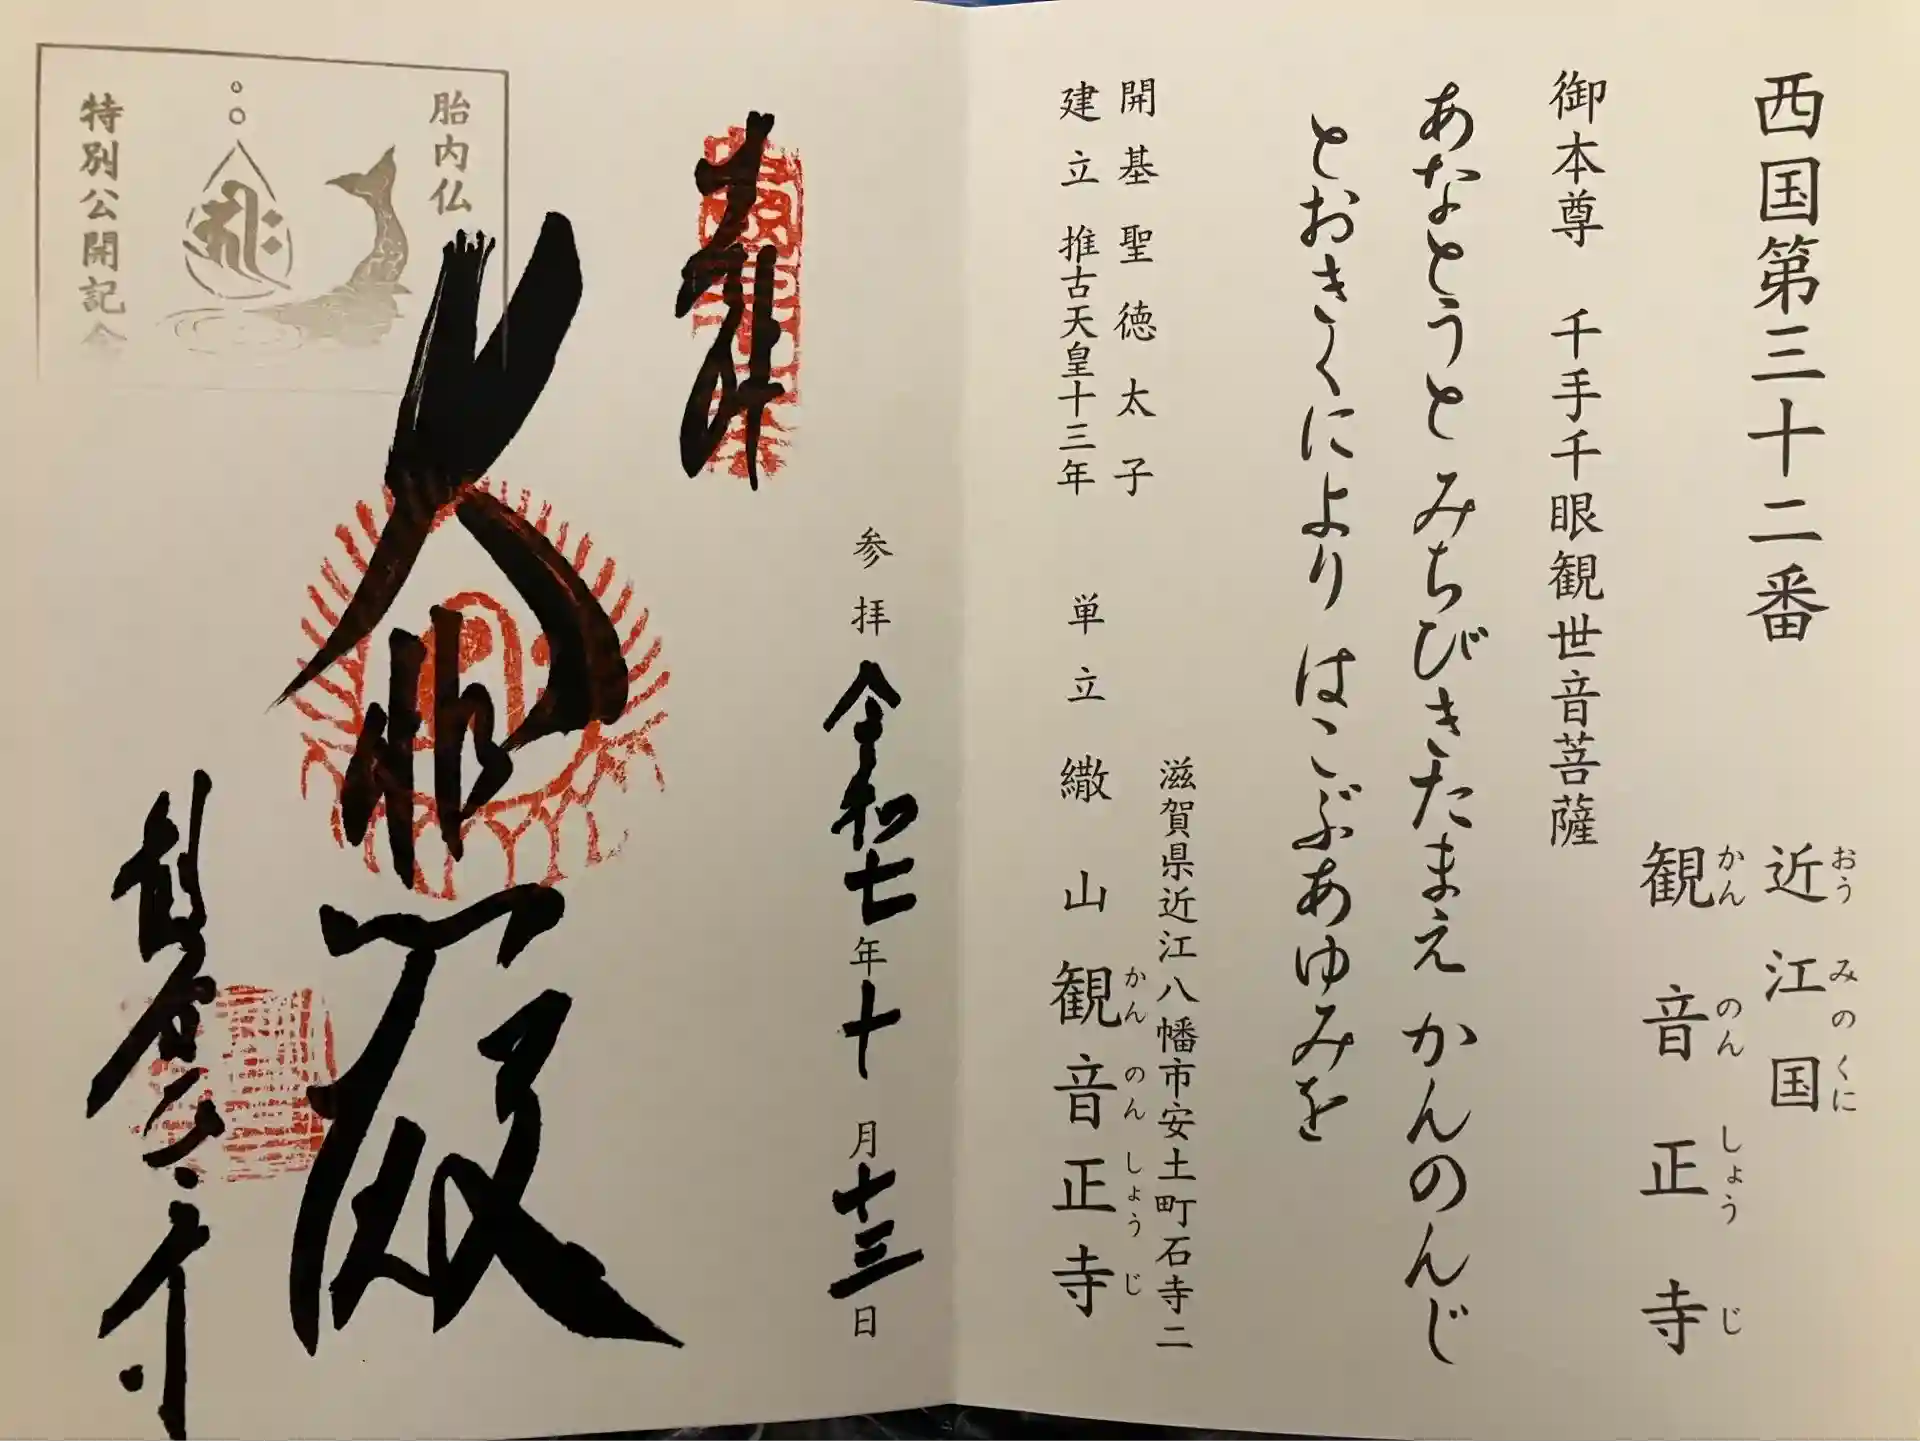 西国第三十二番
近江国
おうみのくに
観音正寺
かんのんしょうじ
御本尊　千手千眼観世音菩薩
あなとうと みちびきたまえ かんのんじ
とおきくにより はこぶあゆみを
滋賀県近江八幡市安土町石寺二
開基 聖徳太子
建立 推古天皇十三年
単立 繖山 観音正寺
かんのんしょうじ
奉拝
参拝 令和七年十月十三日
大悲殿
観音正寺
胎内仏
特別公開記念